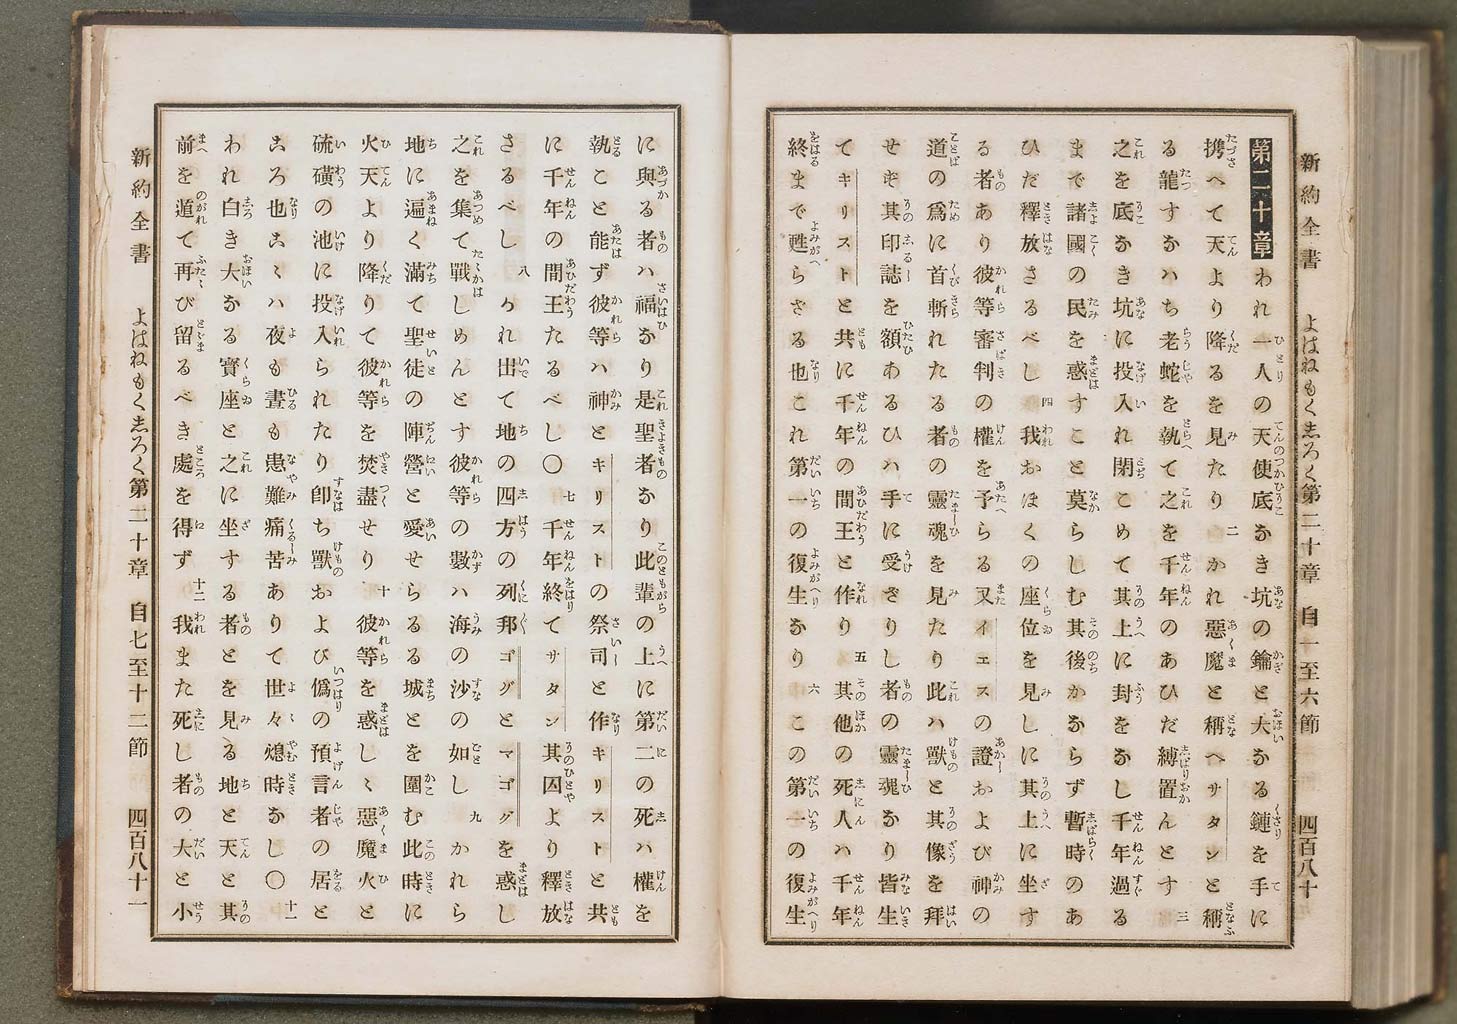 新約全書　よはねもくゑろく第二十章　自一至六節　四百八十
第二十章 われ一人の天使底なき坑の鑰と大なる鏈を手に
携へて天より降るを見たり 二 かれ惡魔と稱へサタンと稱
る龍すなハち老蛇を執て之を千年のあひだ縛置んとす 三
之を底なき坑に投入れ閉こめて其上に封をなし千年過る
まで諸國の民を惑すこと莫らしむ其後かならず暫時のあ
ひだ釋放さるべし 四 我おほくの座位を見しに其上に坐す
る者あり彼等審判の權を予らる又イエスの證および神の
道の爲に首斬れたる者の靈魂を見たり此ハ獸と其像を拜
せず其印誌を額あるひハ手に受ざりし者の靈魂なり皆生
てキリストと共に千年の間王と作り 五 其他の死人ハ千年
終まで甦らざる也これ第一の復生なり 六 この第一の復生
に與る者ハ福なり是聖者なり此輩の上に第二の死ハ權を
執こと能ず彼等ハ神とキリストの祭司と作キリストと共
に千年の間王たるべし〇 七 千年終てサタン其囚より釋放
さるべし 八 かれ出て地の四方の列邦ゴグとマゴグを惑し
之を集て戰しめんとす彼等の數ハ海の沙の如し 九 かれら
地に遍く滿て聖徒の陣營と愛せらるる城とを圍む此時に
火天より降りて彼等を焚盡せり 十 彼等を惑しゝ惡魔火と
硫磺の池に投入られたり卽ち獸および僞の預言者の居と
ころ也こゝハ夜も晝も患難痛苦ありて世々熄時なし〇 十一
われ白き大なる寳座と之に坐する者とを見る地と天と其
前を遁て再び留るべき處を得ず 十二 我また死し者の大と小
新約全書　よはねもくゑろく第二十章　自七至十二節　四百八十一